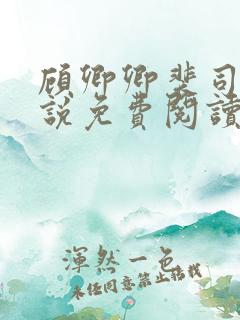 顾卿卿斐司
說免費閱讀
渾然一色
未经同意禁止搭载